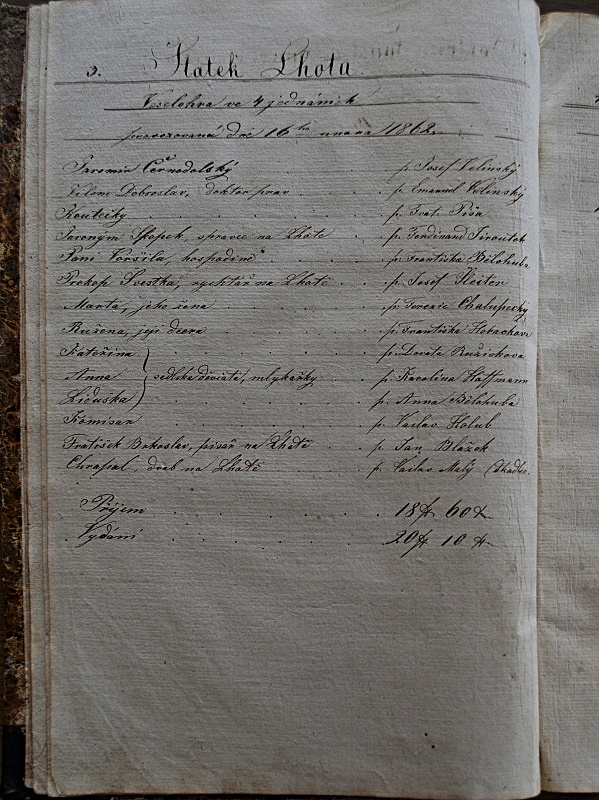 3. Statek Lhota
Veselohra ve 4 jednáních
provozovaná dne 16ho února 1862.
Jaromír Černodolský p. Josef Velinský
Vilém Dobroslav, doktor prav p. Emanuel Velinský
Koutecký p. Frat. Píša
Jeroným Skopek, správce na Lhotě p. Ferdinand Jiroutek
Paní Voršila, hospodině p. Františka Bělohuba
Prokop Švestka, rychtář na Lhotě p. Josef
Marta, jeho žena p. Terezie Chalupecký
Ružena, její dcera p. Františka Horachova
Kateřina p. Dorota Ružickova
Anna selská děvčata, mlykařky p. Karolina Hoffmann
Liduška p. Anna Bělohuba
Komisar p. Vaclav Holub
Fratišek Brkoslav, písař na Lhotě p. Jan Blažek
Chrapal, drab na Lhotě p. Vaclav Malý
Příjem 18 f 60 x
Vydání 20 f 10 x